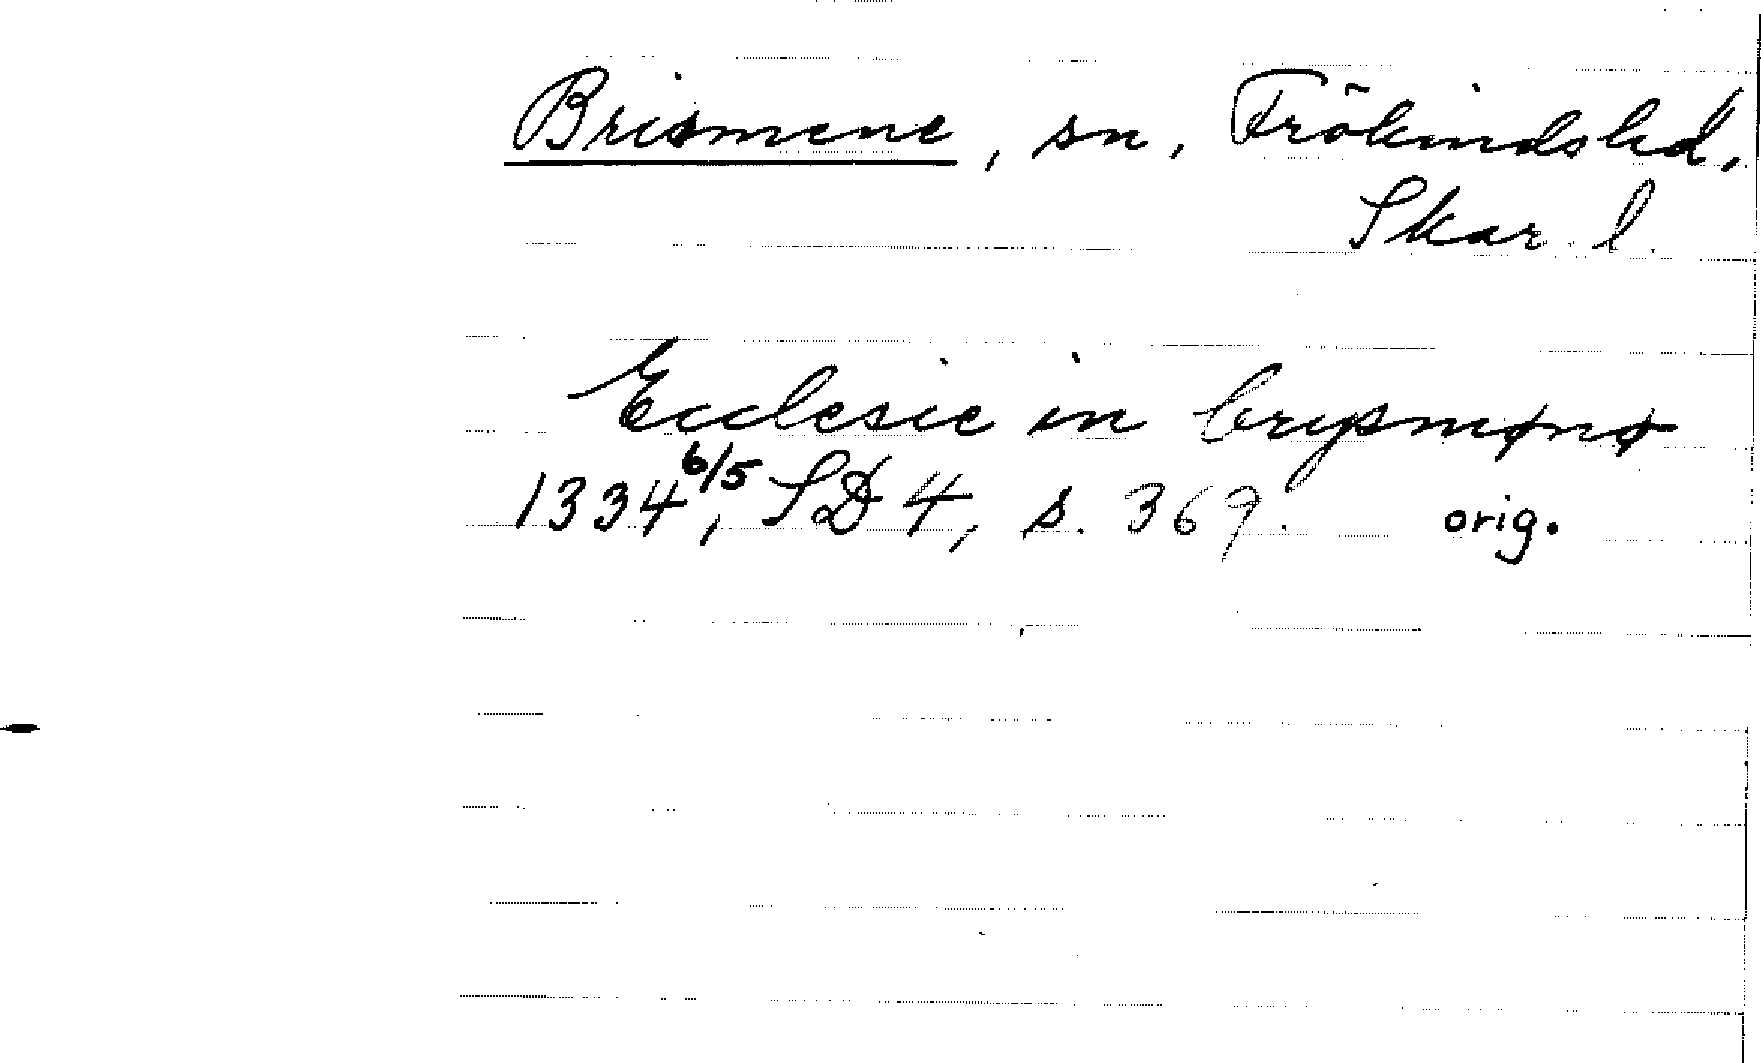 Brismene, sn, Frökindshd,
Skar. l.
Ecclesie in brysmønø
1334 6/5, SD 4, s. 369. orig.